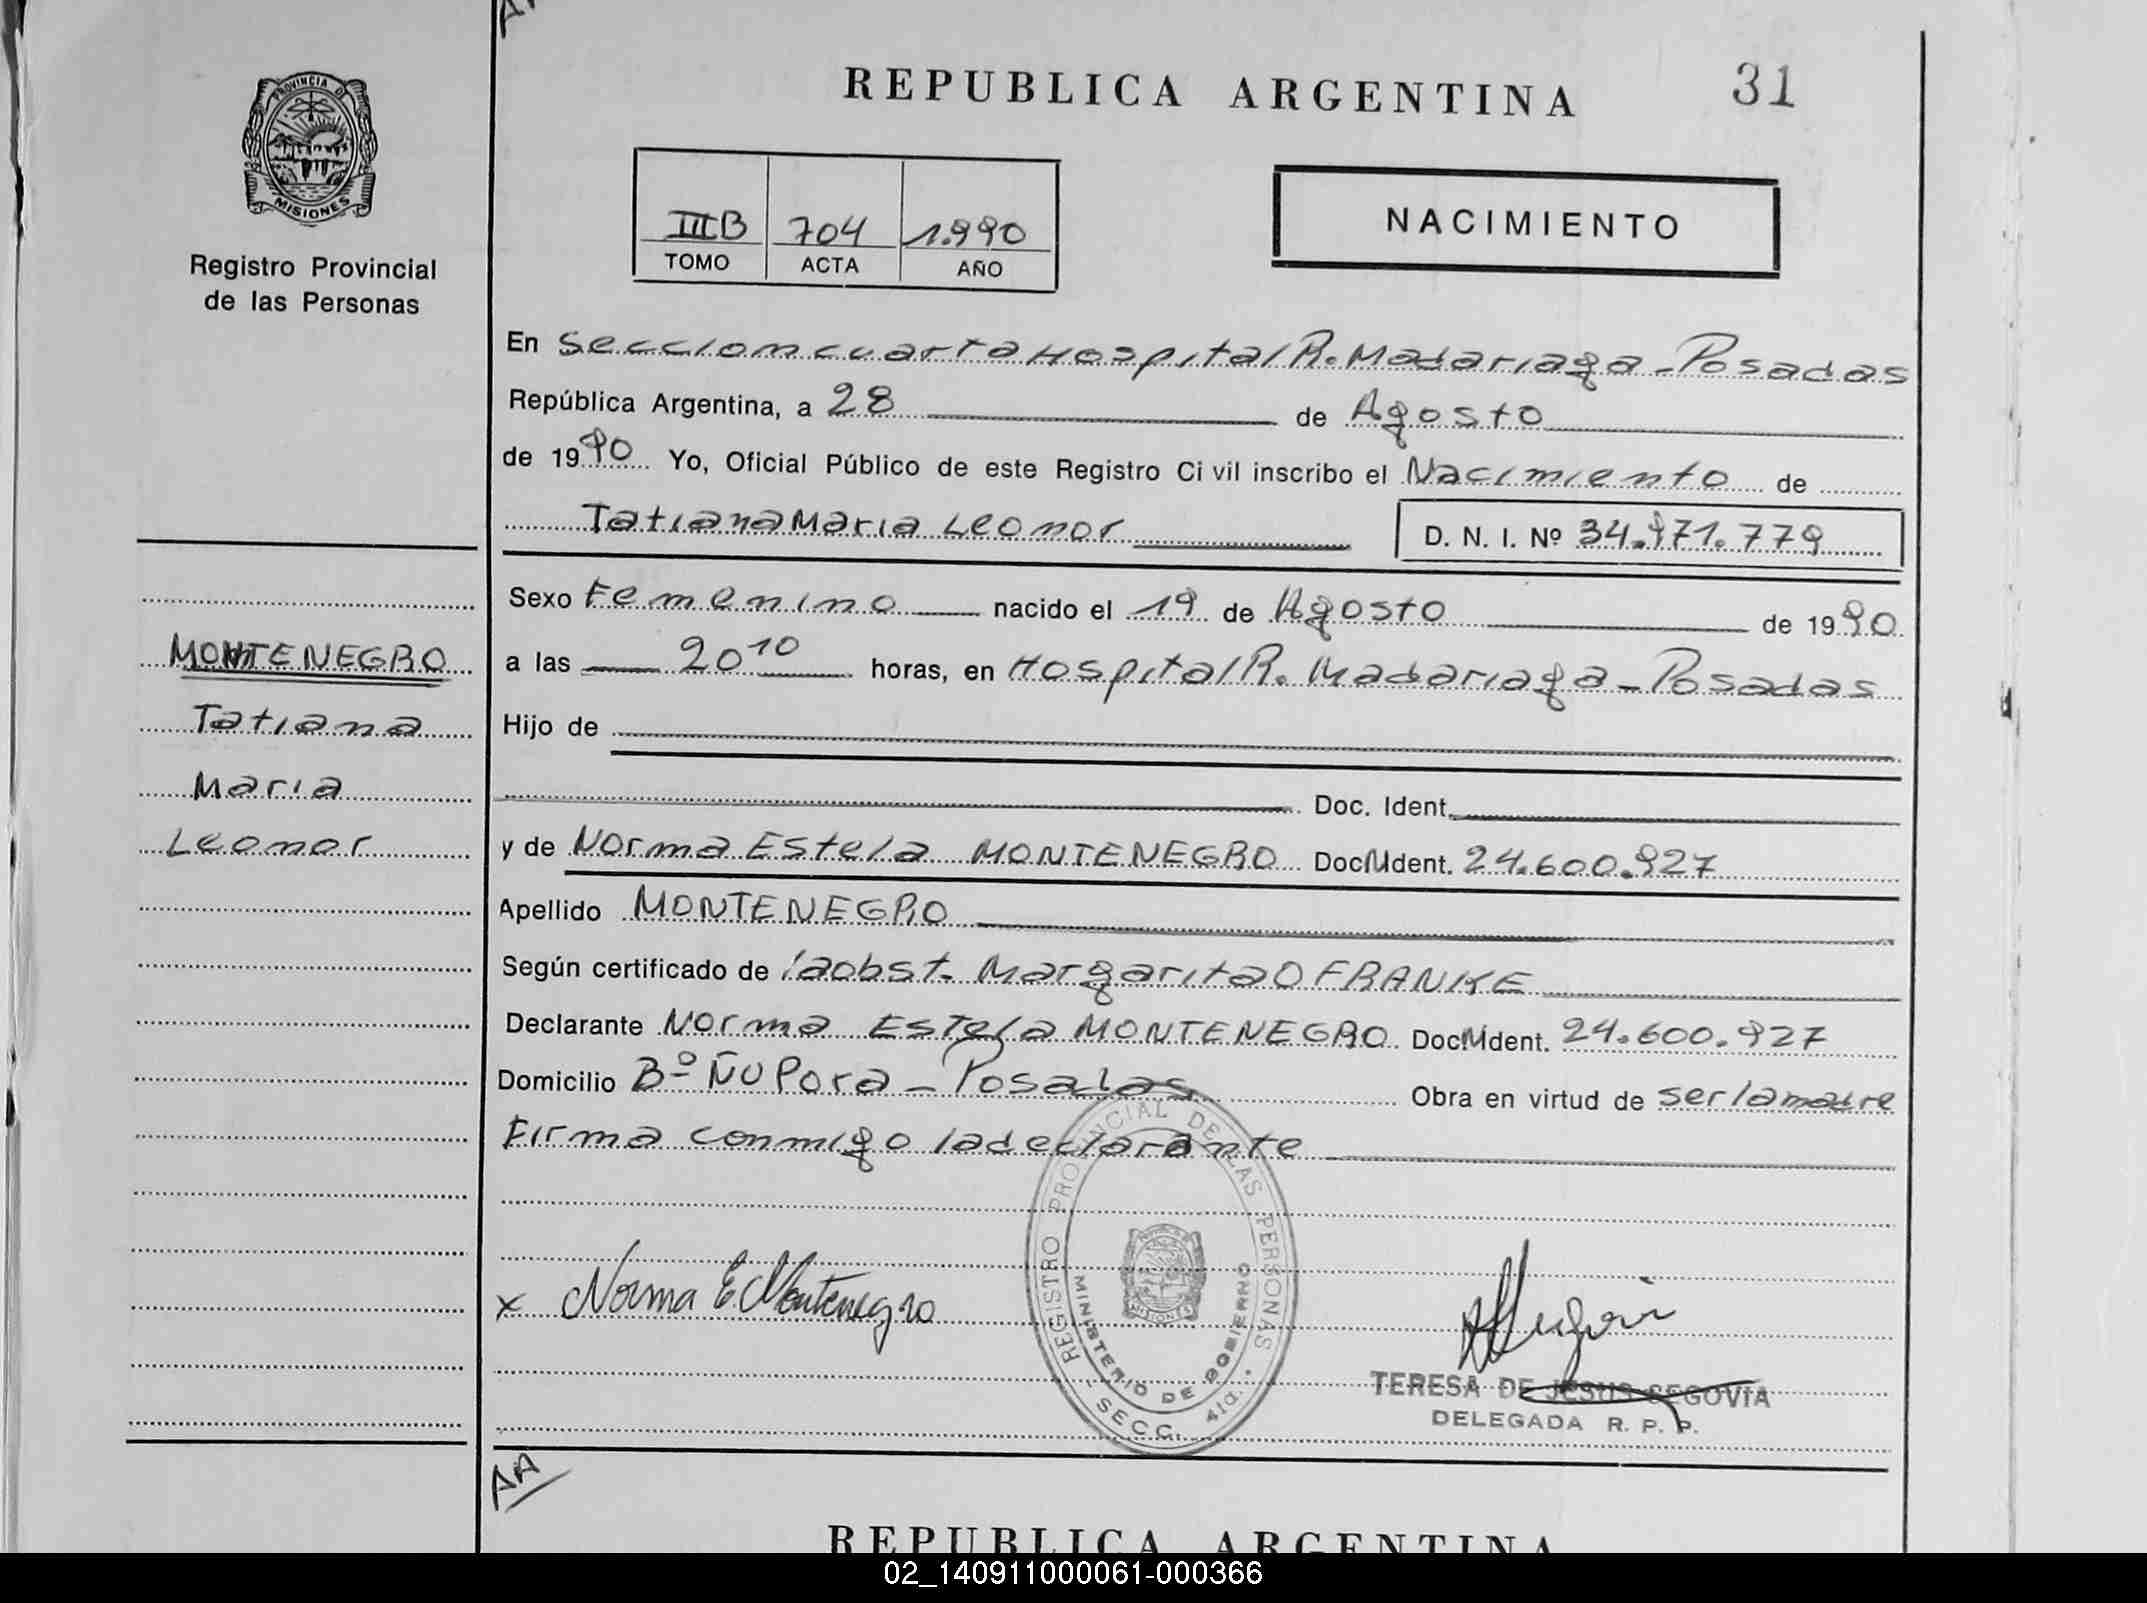 REPUBLICA ARGENTINA
31
PROVINCIA DE
MISIONES
Registro Provincial
de las Personas
IIIB 704 1.990
TOMO ACTA AÑO
NACIMIENTO
En Seccion cuarta Hospital R. Madariaga - Posadas
República Argentina, a 28 de Agosto
de 1990 Yo, Oficial Público de este Registro Civil inscribo el Nacimiento de
Tatiana Maria Leonor D. N. I. Nº 34.971.779
Sexo Femenino nacido el 19 de Agosto de 1990
a las 20 10 horas, en Hospital R. Madariaga - Posadas
Hijo de
Doc. Ident.
y de Norma Estela MONTENEGRO Doc. Ident. 24.600.927
Apellido MONTENEGRO
Según certificado de la obst. Margarita O FRANKE
Declarante Norma Estela MONTENEGRO Doc. Ident. 24.600.927
Domicilio Bº ÑU Pora - Posadas Obra en virtud de ser la madre
Firma conmigo la declarante
MONTENEGRO
Tatiana
Maria
Leonor
x Norma E. Montenegro
REGISTRO PROVINCIAL DE LAS PERSONAS
MINISTERIO DE GOBIERNO
SECC. 4ta.
TERESA DE JESUS SEGOVIA
DELEGADA R. P. P.
AA
REPUBLICA ARGENTINA
02_140911000061-000366